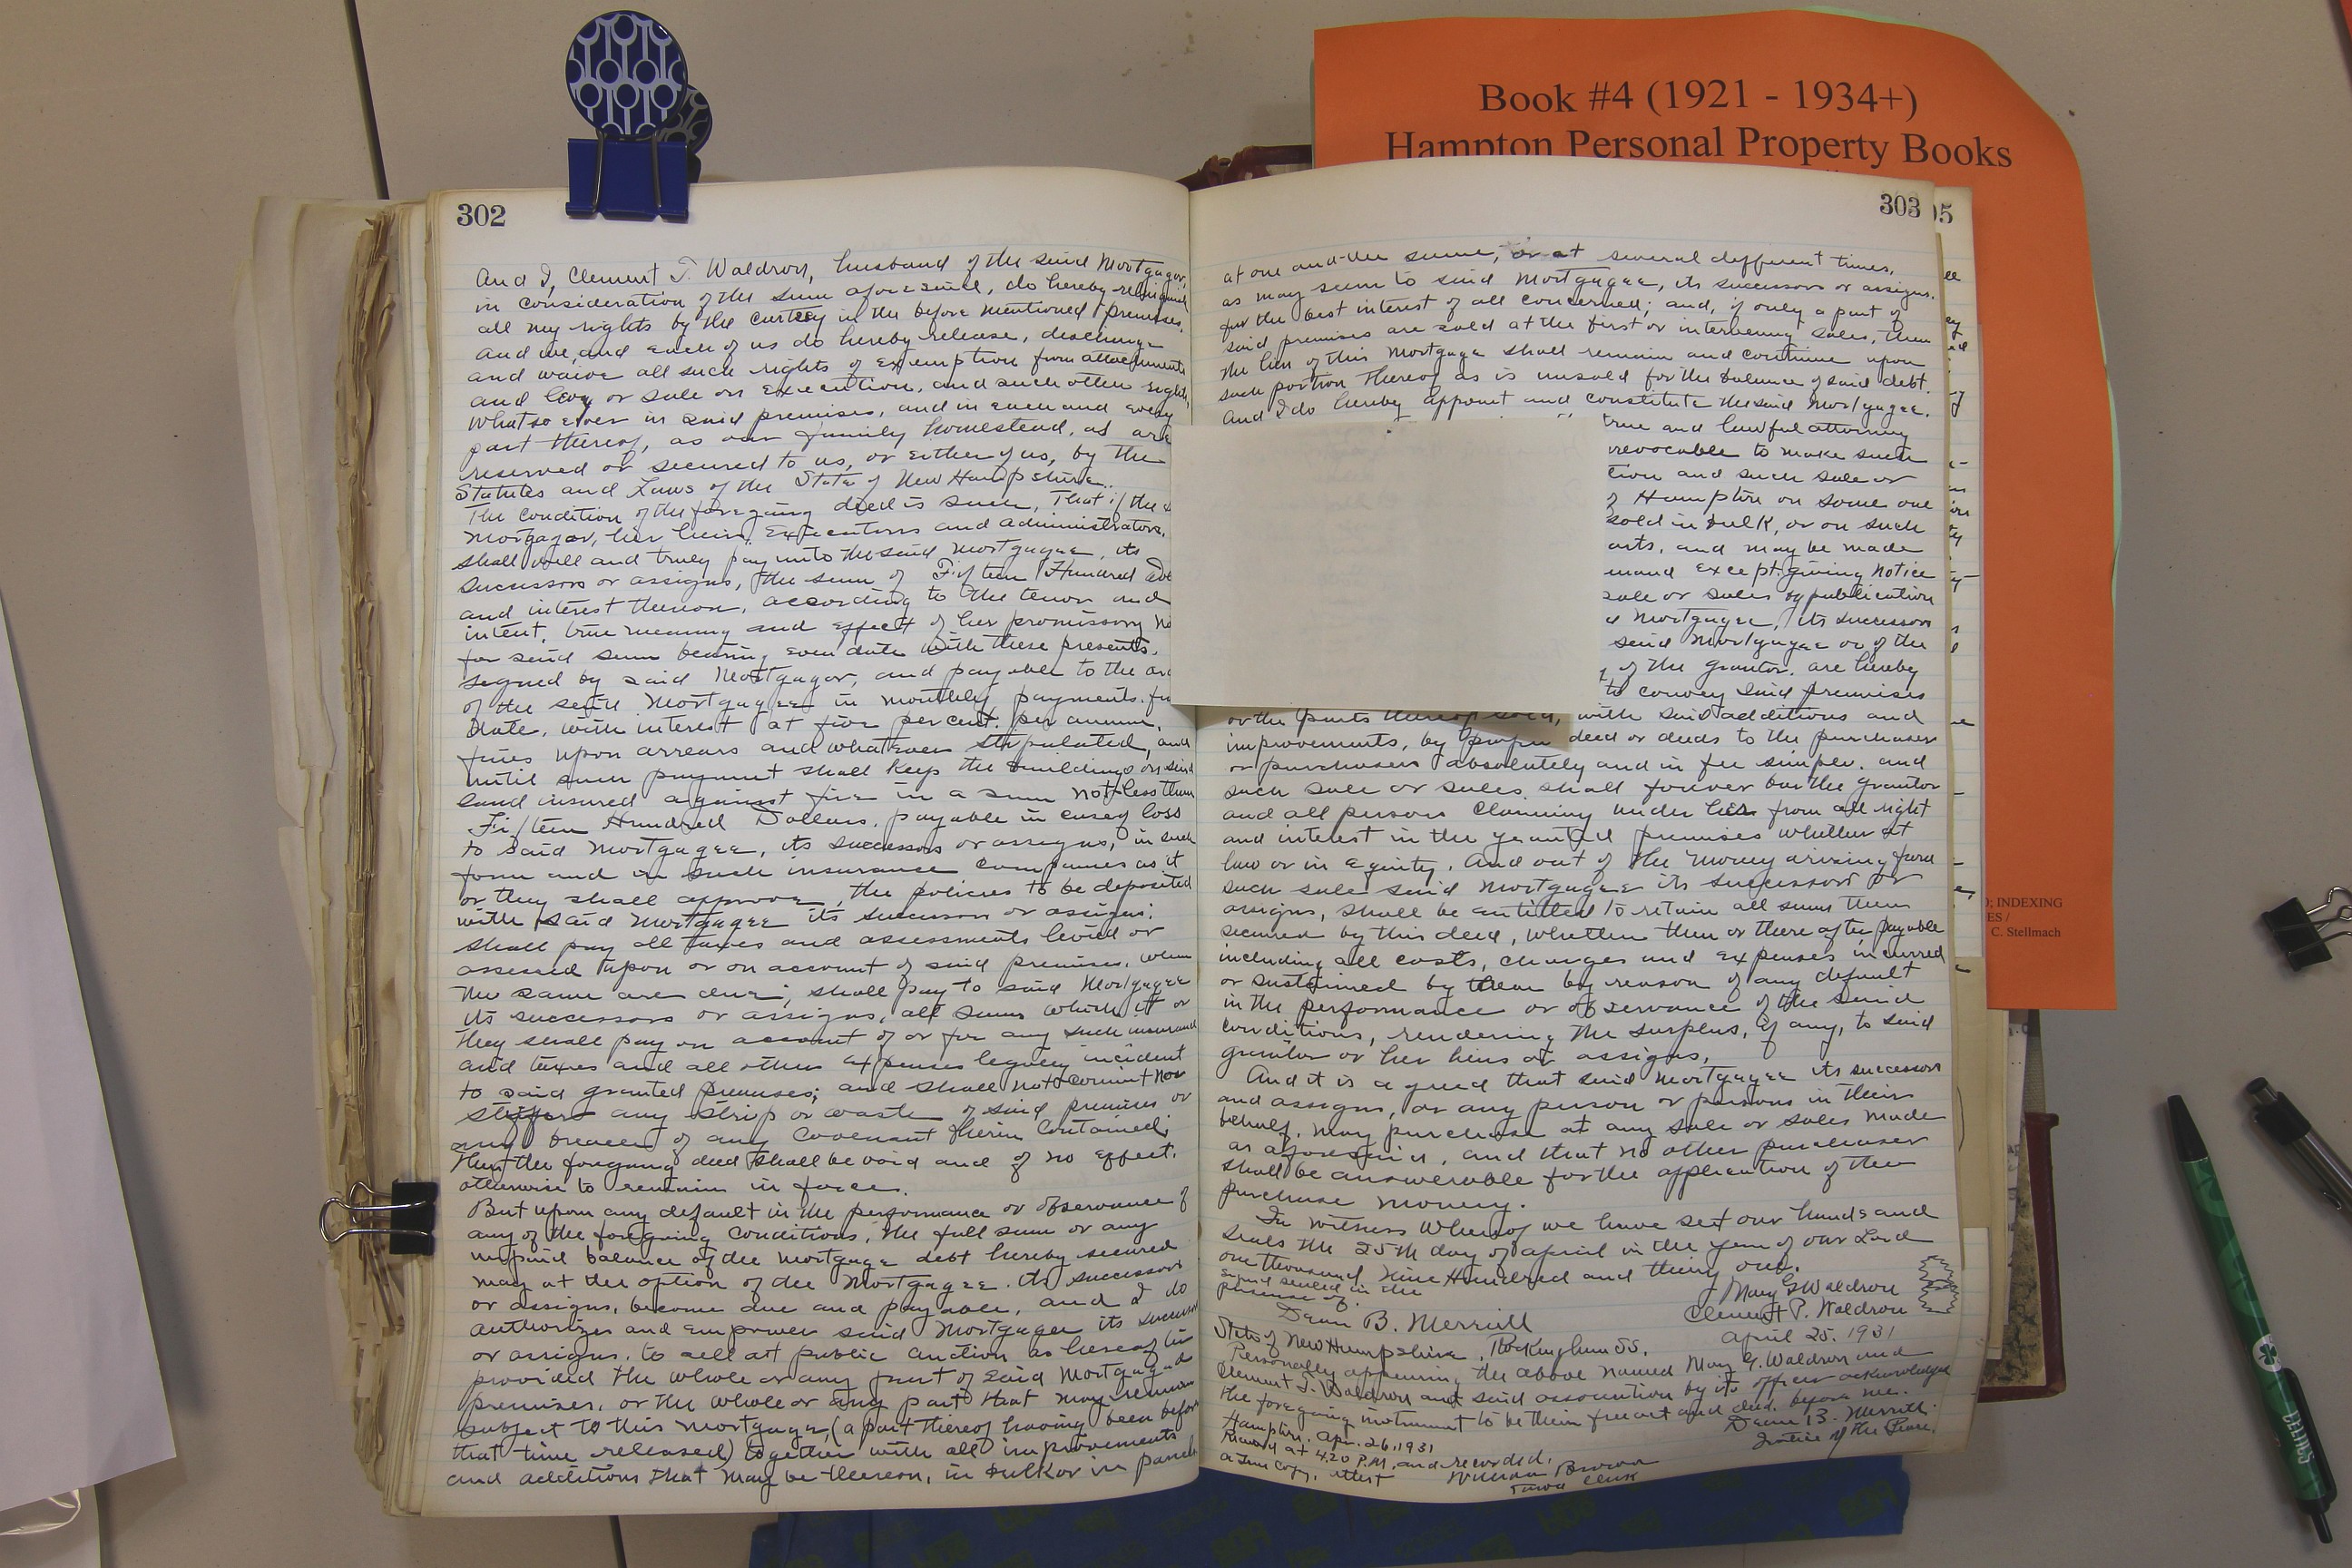 Book #4 (1921 - 1934+)
Hampton Personal Property Books
302
And I, Clement T. Waldron, husband of the said Mortgagor,
in consideration of the sum aforesaid, do hereby relinquish
all my rights by the curtesy in the before mentioned premises.
And we, and each of us do hereby release, discharge
and waive all such rights of exemption from attachments
and levy or sale on execution, and such other rights
whatsoever in said premises, and in each and every
part thereof, as our family homestead, as are
reserved or secured to us, or either of us, by the
Statutes and Laws of the State of New Hampshire.
The condition of the foregoing deed is such, That if the
Mortgagor, her heirs, Executors and administrators,
shall well and truly pay unto the said Mortgagee, its
successors or assigns, the sum of Fifteen Hundred
and interest thereon, according to the tenor and
intent, true meaning and effect of her promissory
for said sum bearing even date with these presents,
signed by said Mortgagor, and payable to the
of the said Mortgagee in monthly payments
date, with interest at five per cent. per annum,
fines upon arrears and whatever stipulated, and
until such payment shall keep the buildings on said
land insured against fire in a sum not less than
Fifteen Hundred Dollars, payable in case of loss
to said Mortgagee, its successors or assigns, in such
form and in such insurance companies as it
or they shall approve, the policies to be deposited
with said Mortgagee its successors or assigns;
shall pay all taxes and assessments levied or
assessed upon or on account of said premises, when
the same are due; shall pay to said Mortgagee
its successors or assigns, all sums which it or
they shall pay on account of or for any such insurance
and taxes and all other expenses legally incident
to said granted premises; and shall not commit nor
suffer any strip or waste of said premises or
any breach of any covenant herein contained;
then the foregoing deed shall be void and of no effect,
otherwise to remain in force.
But upon any default in the performance or observance of
any of the foregoing conditions, the full sum or any
unpaid balance of the mortgage debt hereby secured
may at the option of the Mortgagee. its successors
or assigns, become due and payable, and I do
authorize and empower said Mortgagee its
or assigns, to sell at public auction as hereafter
provided the whole or any part of said Mortgaged
premises, or the whole or any part that may remain
subject to this mortgage, (a part thereof having been before
that time released) together with all improvements
and additions that may be thereon, in bulk or in parcels
303
05
at one and the same, or at several different times,
as may seem to said Mortgagee, its successors or assigns,
for the best interest of all concerned; and, if only a part of
said premises are sold at the first or intervening sales, then
the lien of this Mortgage shall remain and continue upon
such portion thereof as is unsold for the balance of said debt.
And I do hereby appoint and constitute the said Mortgagee.
true and lawful attorney
revocable to make such
tion and such sale or
of Hampton on some one
sold in bulk, or on such
arts, and may be made
mand except giving notice
sale or sales by publication
d Mortgagee, its successors
said Mortgagee or of the
of the grantor. are hereby
to convey said premises
or the parts thereof sold, with said additions and
improvements, by proper deed or deeds to the purchaser
or purchasers absolutely and in fee simple. and
such sale or sales shall forever bar the grantor
and all persons claiming under her from all right
and interest in the granted premises whether at
law or in equity. And out of the money arising from
such sale said Mortgagee its successors or
assigns, shall be entitled to retain all sums then
secured by this deed, whether then or thereafter payable
including all costs, charges and expenses incurred
or sustained by them by reason of any default
in the performance or observance of the said
conditions, rendering the surplus, if any, to said
grantor or her heirs or assigns,
And it is agreed that said Mortgagee its successors
and assigns, or any person or persons in their
behalf, may purchase at any sale or sales made
as aforesaid, and that no other purchaser
shall be answerable for the application of the
purchase money.
In witness whereof we have set our hands and
seals the 25th day of april in the year of our Lord
one thousand Nine Hundred and thirty one.
signed sealed in the
presence of.
Mary G Waldron
Clement T. Waldron
Dean B. Merrill
April 25. 1931
State of New Hampshire, Rockingham SS.
Personally appearing the above named Mary G. Waldron and
Clement T. Waldron and said association by its officer acknowledged
the foregoing instrument to be their free act and deed, before me.
Dean B. Merrill
Justice of the Peace.
Hampton, Apr. 26, 1931
Received at 4.20 P.M. and recorded,
a True Copy, attest William Brown
Town Clerk
; INDEXING
ES /
C. Stellmach